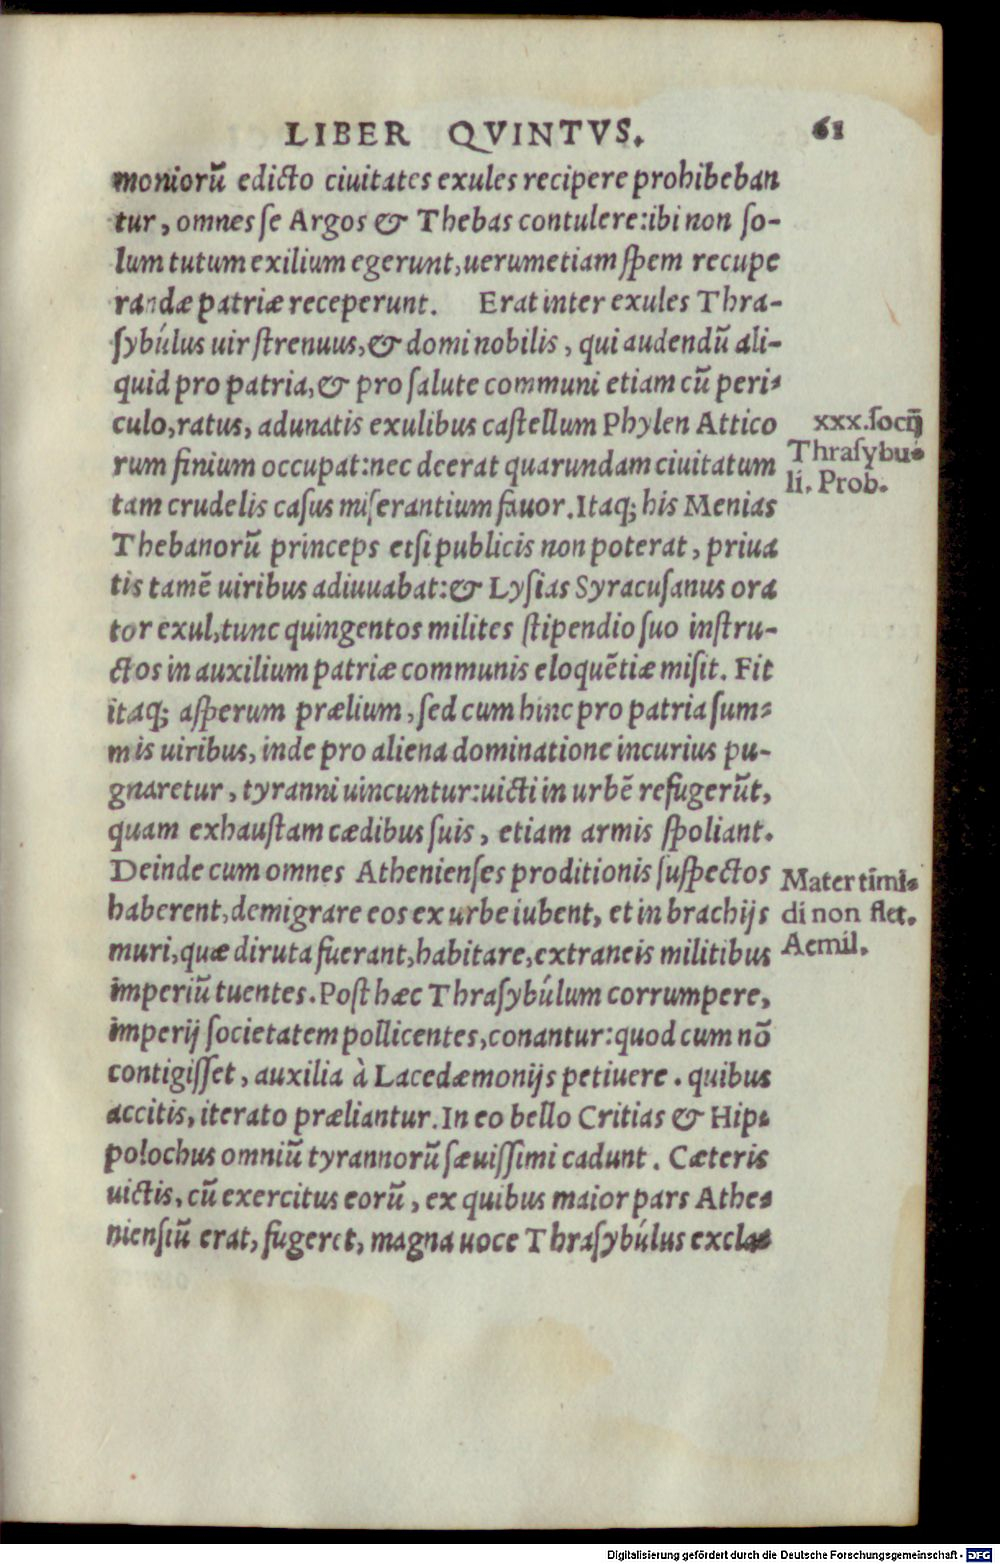 LIBER QVINTVS. 61
moniorū edicto ciuitates exules recipere prohibeban
tur, omnes se Argos & Thebas contulere: ibi non so-
lum tutum exilium egerunt, uerumetiam spem recupe
randæ patriæ receperunt. Erat inter exules Thra-
sybúlus uir strenuus, & domi nobilis, qui audendū ali-
quid pro patria, & pro salute communi etiam cū peri-
culo, ratus, adunatis exulibus castellum Phylen Attico
rum finium occupat: nec deerat quarundam ciuitatum
tam crudelis casus miserantium fauor. Itaq; his Menias
Thebanorū princeps etsi publicis non poterat, priua
tis tamē uiribus adiuuabat: & Lysias Syracusanus ora
tor exul, tunc quingentos milites stipendio suo instru-
ctos in auxilium patriæ communis eloquētiæ misit. Fit
itaq; asperum prælium, sed cum hinc pro patria sum-
mis uiribus, inde pro aliena dominatione incurius pu-
gnaretur, tyranni uincuntur: uicti in urbē refugerūt,
quam exhaustam cædibus suis, etiam armis spoliant.
Deinde cum omnes Athenienses proditionis suspectos
haberent, demigrare eos ex urbe iubent, et in brachijs
muri, quæ diruta fuerant, habitare, extraneis militibus
imperiū tuentes. Post hæc Thrasybúlum corrumpere,
imperij societatem pollicentes, conantur: quod cum nō
contigisset, auxilia à Lacedæmonijs petiuere. quibus
accitis, iterato præliantur. In eo bello Critias & Hip-
polochus omniū tyrannorū sæuissimi cadunt. Cæteris
uictis, cū exercitus eorū, ex quibus maior pars Athe-
niensiū erat, fugeret, magna uoce Thrasybúlus excla-
xxx. socij
Thrasybu-
li. Prob.
Mater timi-
di non flet.
Aemil.
Digitalisierung gefördert durch die Deutsche Forschungsgemeinschaft - DFG